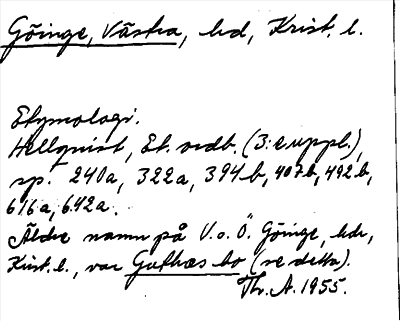 Göinge, Västra, hd, Krist. l.
Etymologi.
Hellquist, Et. ordb. (3:e uppl.),
sp. 240a, 322a, 394b, 407b, 492b,
616a, 642a.
Äldre namn på V. o. Ö. Göinge, hdr,
Krist. l., var Guthæs bo (se detta).
Th. A. 1955.